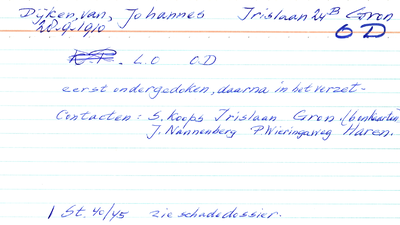 Dijken, van, Johannes Irislaan 24B Gron
28-9-1910 OD
L.O OD
eerst ondergedoken, daarna in het verzet-
Contacten: S. Koops Irislaan Gron. (bonkaarten)
J. Nannenberg P. Wieringaweg Haren.
1 St. 40/45 zie schadedossier.